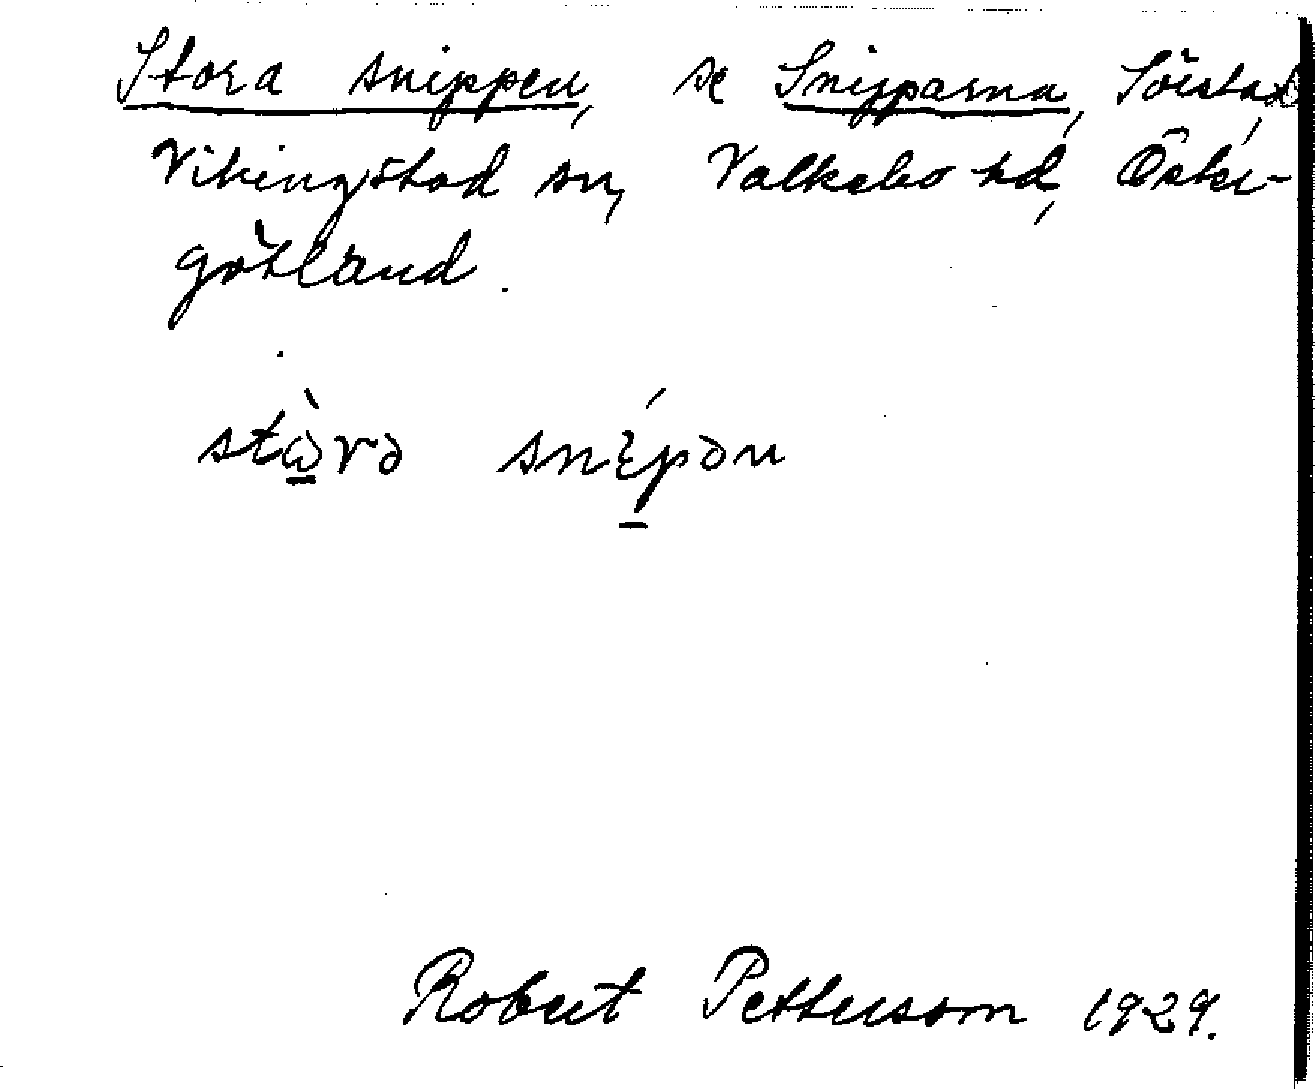 Stora snippen, se Snipparna, Sörstad,
Vikingstad sn, Valkebo hd, Öster-
götland.
stὼ̲rə snép̲ən
Robert Pettersson 1929.